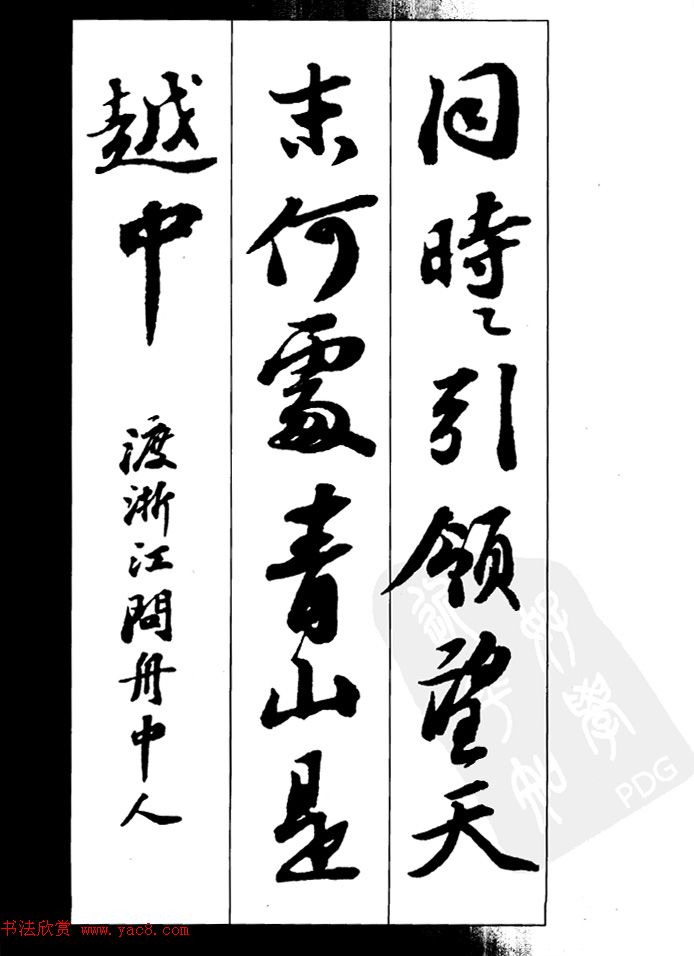 同時時引領望天
末何處青山是
越中
渡浙江問舟中人
書法欣赏 www.yac8.com
PDG